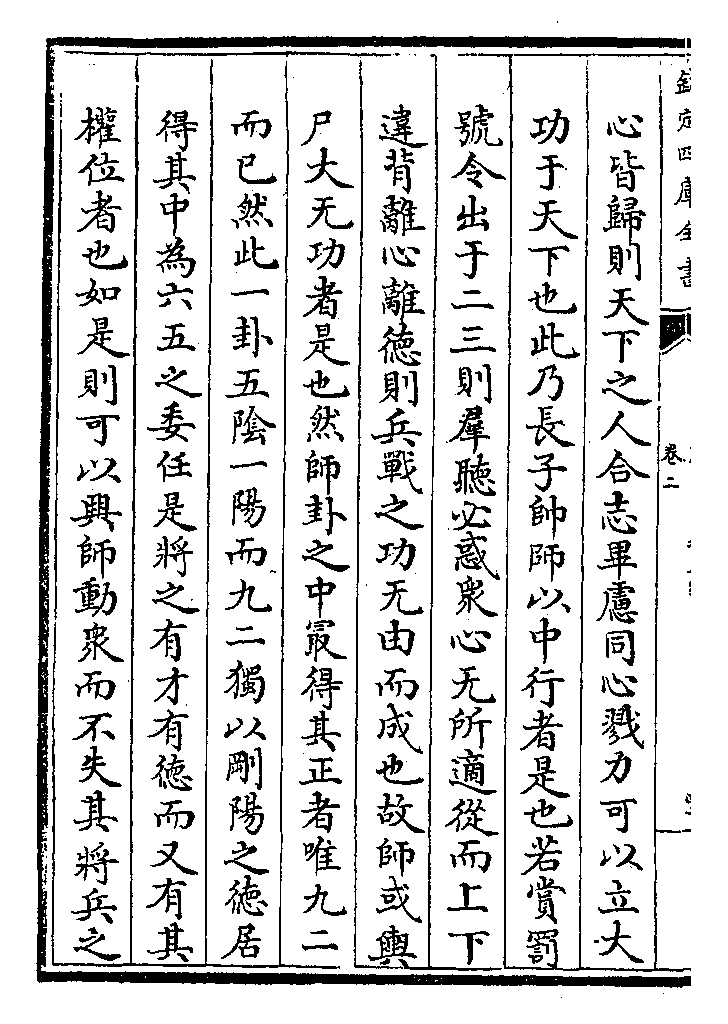 欽定四庫全書
卷二
心皆歸則天下之人合志畢慮同心戮力可以立大
功于天下也此乃長子帥師以中行者是也若賞罰
號令出于二三則羣聽必惑衆心无所適從而上下
違背離心離德則兵戰之功无由而成也故師或輿
尸大无功者是也然師卦之中最得其正者唯九二
而已然此一卦五陰一陽而九二獨以剛陽之德居
得其中為六五之委任是將之有才有德而又有其
權位者也如是則可以興師動衆而不失其將兵之